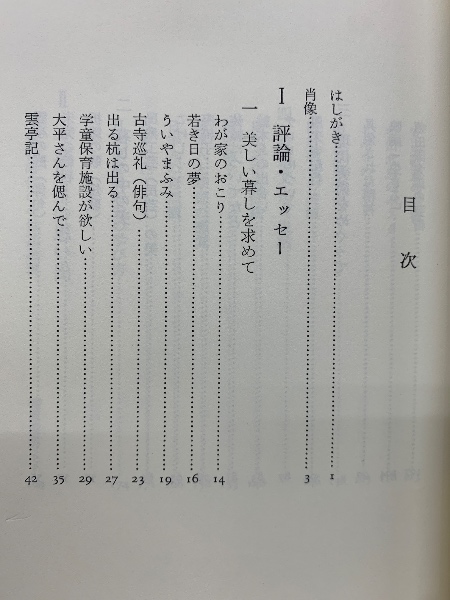 目次
はしがき……1
肖像……3
Ⅰ 評論・エッセー
一 美しい暮しを求めて
わが家のおこり……14
若き日の夢……16
ういやまふみ……19
古寺巡礼（俳句）……23
出る杭は出る……27
学童保育施設が欲しい……29
大平さんを偲んで……35
雲亭記……42